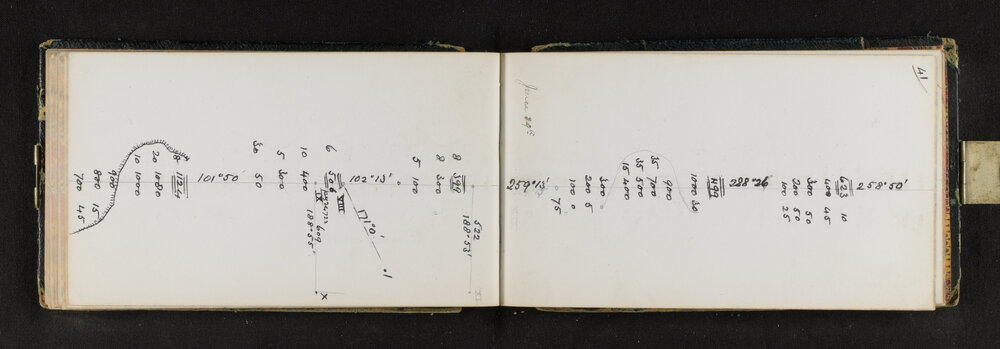 700 45
800 15
900
10 1000
20 1080
8 1124
101°50'
30 50
5 300
10 400
6 506
VIII
IX
609
188°55'
X
171°0'
.1
102°13'
5 100
8 300
8 399
522
188°53'
XI
June 29th
259°13'
75
100 0
200 5
300
15 400
35 500
35 700
900
1000 30
1199
288°26
100 25
200 50
300 50
400 45
603 10
258°50'
41